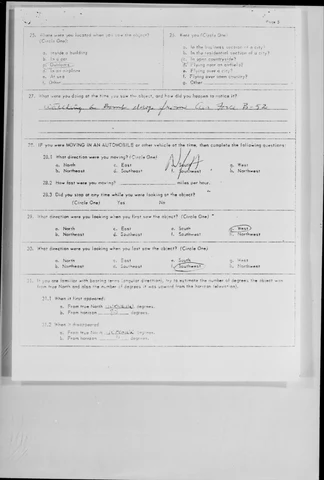 Page 3
25. Where were you located when you saw the object? (Circle One)
a. Inside a building
b. In a car
c. Outdoors
d. In an airplane
e. At sea
f. Other
26. Were you (Circle One)
a. In the business section of a city?
b. In the residential section of a city?
c. In open countryside?
d. Flying near an airfield?
e. Flying over a city?
f. Flying over open country?
g. Other
27. What were you doing at the time you saw the object, and how did you happen to notice it?
Watching a Bomb drop from Air Force B-52
28. IF you were MOVING IN AN AUTOMOBILE or other vehicle at the time, then complete the following questions:
28.1 What direction were you moving? (Circle One)
a. North c. East e. South g. West
b. Northeast d. Southeast f. Southwest h. Northwest
28.2 How fast were you moving? miles per hour.
28.3 Did you stop at any time while you were looking at the object?
(Circle One) Yes No
29. What direction were you looking when you first saw the object? (Circle One)
a. North c. East e. South g. West
b. Northeast d. Southeast f. Southwest h. Northwest
30. What direction were you looking when you last saw the object? (Circle One)
a. North c. East e. South g. West
b. Northeast d. Southeast f. Southwest h. Northwest
31. If you are familiar with bearing terms (angular direction), try to estimate the number of degrees the object was
from true North and also the number of degrees it was upward from the horizon (elevation).
31.1 When it first appeared:
a. From true North degrees.
b. From horizon degrees.
31.2 When it disappeared:
a. From true North degrees.
b. From horizon degrees.